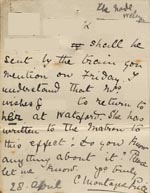 The Node,
Welwyn
shall be
sent by the train you
mention on Friday. I
understand that Mrs
wishes to return to
her at Watford. She has
written to the Matron to
this effect; do you know
anything about it? Please
let us know. Yrs truly
28 April C Montague